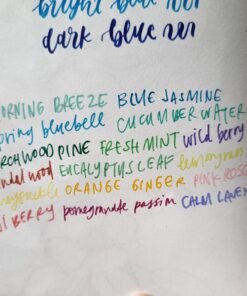 bright blue
dark blue
ORNING BREEZE BLUE JASMINE
pring bluebell CUCUMBER WATER
RCHWOOD PINE FRESH MINT wild berry
ndal wood EUCALYPTUS LEAF lemongrass
neysuckle ORANGE GINGER PINK ROSE
I BERRY pomegranate passion CALM LAVEN